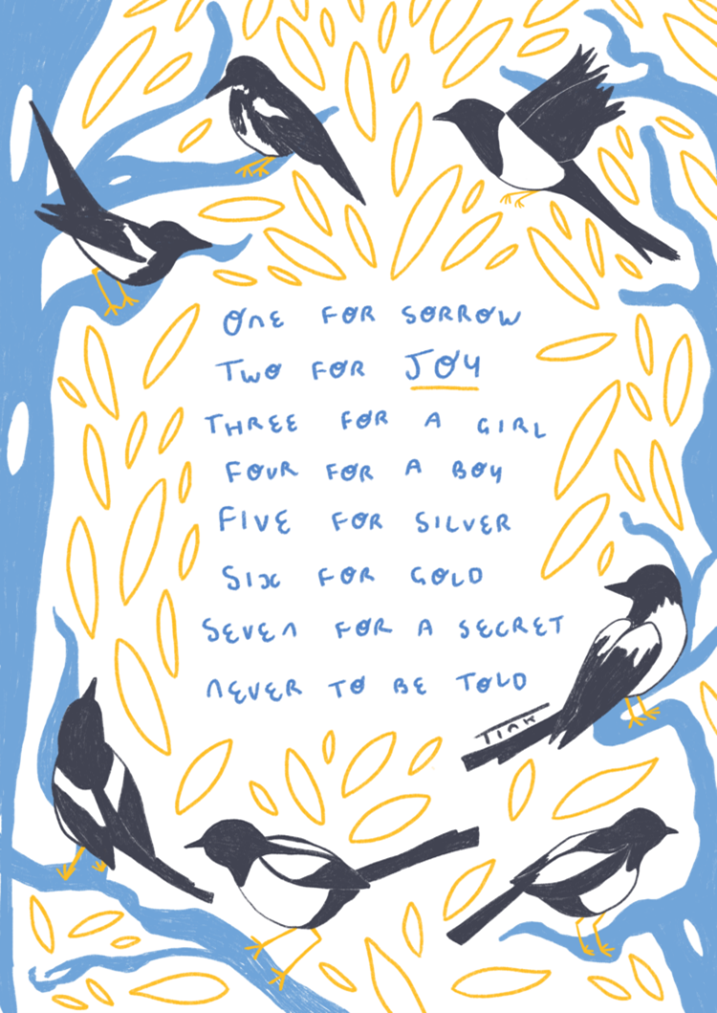 ONE FOR SORROW
TWO FOR JOY
THREE FOR A GIRL
FOUR FOR A BOY
FIVE FOR SILVER
SIX FOR GOLD
SEVEN FOR A SECRET
NEVER TO BE TOLD
TINK